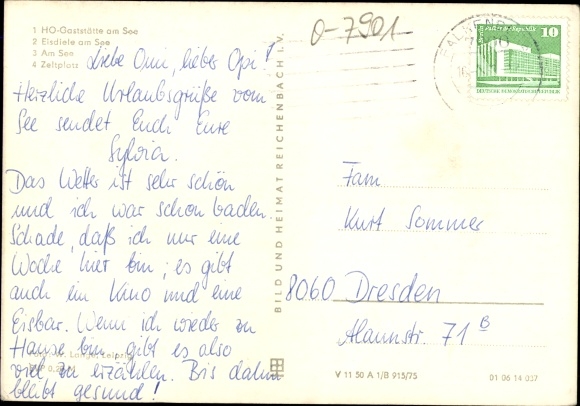 1 HO-Gaststätte am See
2 Eisdiele am See
3 Am See
4 Zeltplatz
Liebe Omi, lieber Opi!
Herzliche Urlaubsgrüße vom
See sendet Euch Eure
Sylvia.
Das Wetter ist sehr schön
und ich war schon baden.
Schade, daß ich nur eine
Woche hier bin; es gibt
auch ein Kino und eine
Eisbar. Wenn ich wieder zu
Hause bin gibt es also
viel zu erzählen. Bis dahin
bleibt gesund!
Leipzig
BILD UND HEIMAT REICHENBACH I. V.
0-7901
10
DEUTSCHE DEMOKRATISCHE REPUBLIK
Fam
Kurt Sommer
8060 Dresden
Alaunstr. 71 B
V 11 50 A 1/B 915/75
01 06 14 037